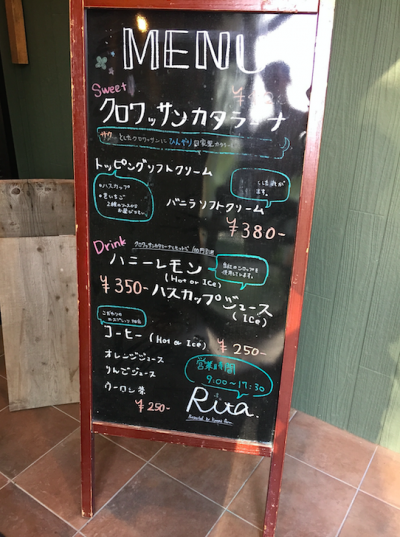 MENU
Sweet
クロワッサンカタラーナ
サクッとしたクロワッサンに ひんやり 自家製カタラーナ
トッピングソフトクリーム
・ハスカップ
・きいちご
2種のソースから
お選び下さい。
が
ます。
バニラソフトクリーム
¥380-
Drink
クロワッサンカタラーナとセットで 100円引き
ハニーレモン
(Hot or ICe)
自社のシロップを
使用しています。
¥350-
ハスカップジュース
(ICe)
こだわりの
コーヒー (Hot or ICe)
¥250-
オレンジジュース
りんごジュース
ウーロン茶
¥250-
営業時間
9:00~17:30
Rita.